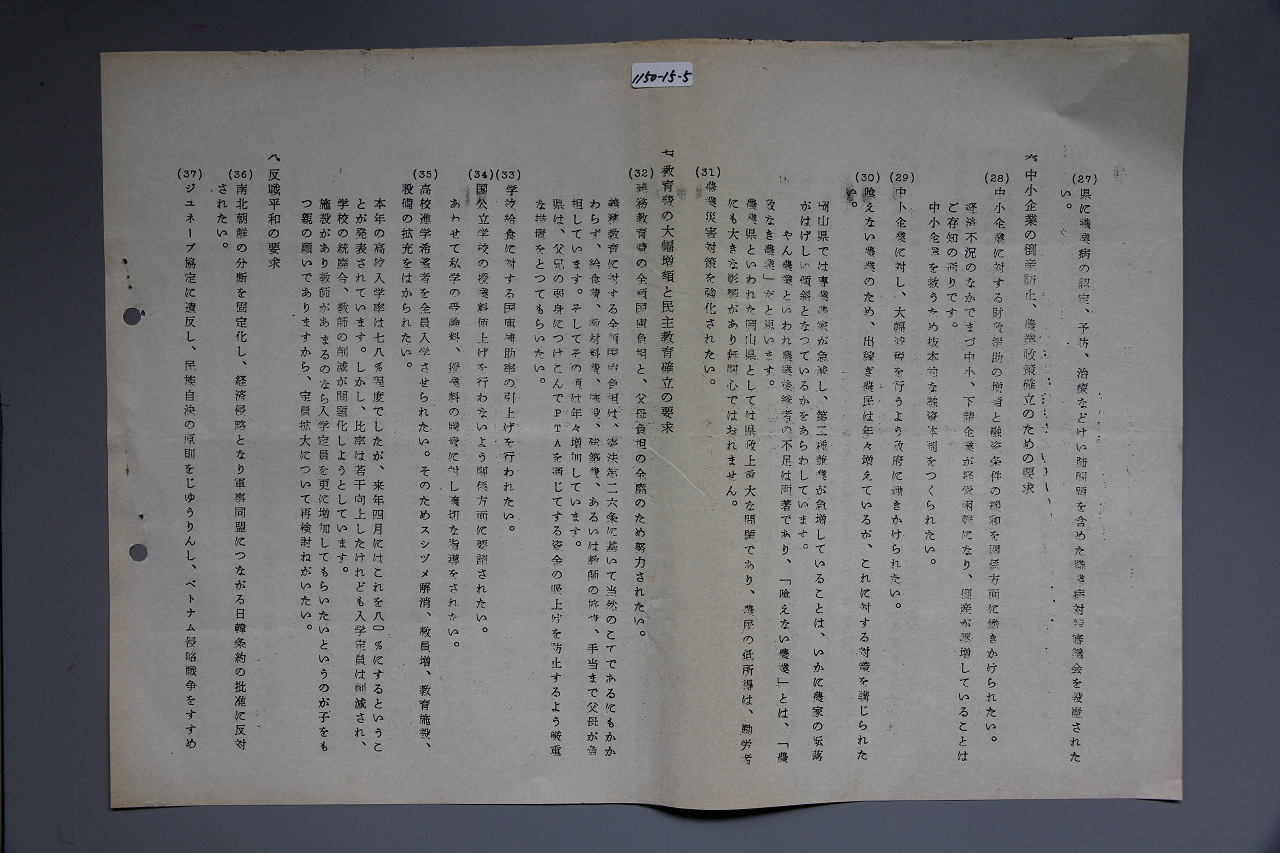 1150-15-5
(27) 県に職業病の認定、予防、治療などけい肺問題を含めた職業病対策審議会を設置された
い。
六 中小企業の倒産防止、農業政策確立のための要求
(28) 中小企業に対する財政援助の増額と融資条件の緩和を関係方面に働きかけられたい。
経済不況のなかでまづ中小、下請企業が経営困難になり、倒産が激増していることは
ご存知の通りです。
中小企業を救うため抜本的な融資体制をつくられたい。
(29) 中小企業に対し、大幅減税を行うよう政府に働きかけられたい。
(30) 喰えない農業のため、出稼ぎ農民は年々増えているが、これに対する対策を講じられた
い。
岡山県では専業農家が急減し、第二種兼業が急増していることは、いかに農家の転落
がはげしい傾斜となつているかをあらわしています。
やん農業といわれ農業後継者の不足は顕著であり、「喰えない農業」とは、「農
政なき農業」だと思います。
農業県といわれた岡山県としては県政上重大な問題であり、農民の低所得は、勤労者
にも大きな影響があり無関心ではおれません。
(31) 農業災害対策を強化されたい。
七 教育費の大幅増額と民主教育確立の要求
(32) 義務教育費の全額国庫負担と、父母負担の全廃のため努力されたい。
義務教育に対する全額国庫負担は、憲法第二六条に基いて当然のことであるにもかか
わらず、給食費、教材料費、施設、建築費、あるいは教師の旅費、手当まで父母が負
担しています。そしてその額は年々増加しています。
県は、父兄の弱身につけこんでPTAを通じてする資金の吸上げを防止するよう厳重
な措置をとつてもらいたい。
(33) 学校給食に対する国庫補助率の引上げを行われたい。
(34) 国公立学校の授業料値上げを行わないよう関係方面に要請されたい。
あわせて私学の受験料、授業料の暴騰に対し適切な指導をされたい。
(35) 高校進学希望者を全員入学させられたい。そのためスシヅメ解消、教員増、教育施設、
設備の拡充をはかられたい。
本年の高校入学率は七八%程度でしたが、来年四月にはこれを八〇%にするというこ
とが発表されています。しかし、比率は若干向上したけれども入学定員は削減され、
学校の統廃合、教師の削減が問題化しようとしています。
施設があり教師があまるのなら入学定員を更に増加してもらいたいというのが子をも
つ親の願いでありますから、定員拡大について再検討ねがいたい。
八 反戦平和の要求
(36) 南北朝鮮の分断を固定化し、経済侵略となり軍事同盟につながる日韓条約の批准に反対
されたい。
(37) ジユネーブ協定に違反し、民族自決の原則をじゆうりんし、ベトナム侵略戦争をすすめ